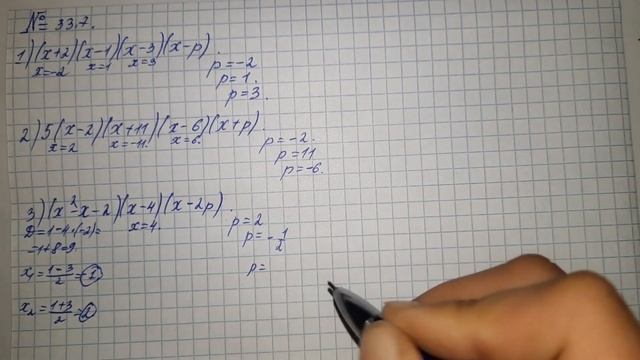 № 33.7.
1) (x+2)(x-1)(x-3)(x-p).
x=-2 x=1 x=3
p=-2
p=1.
p=3.
2) 5(x-2)(x+11)(x-6)(x+p).
x=2 x=-11. x=6.
p=-2.
p=11
p=-6.
3) (x²-x-2)(x-4)(x-2p).
D=1-4·(-2)= x=4.
=1+8=9
x₁=\frac{1-3}{2}=-1
x₂=\frac{1+3}{2}=2
p=2
p=-\frac{1}{2}
p=